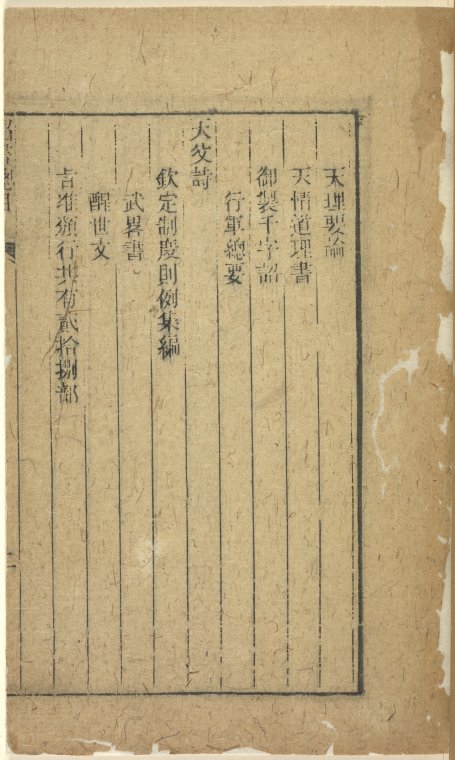 天理要論
天情道理書
御製千字詔
行軍總要
天父詩
欽定制度則例集編
武畧書
醒世文
旨准頒行共有貳拾捌部
二